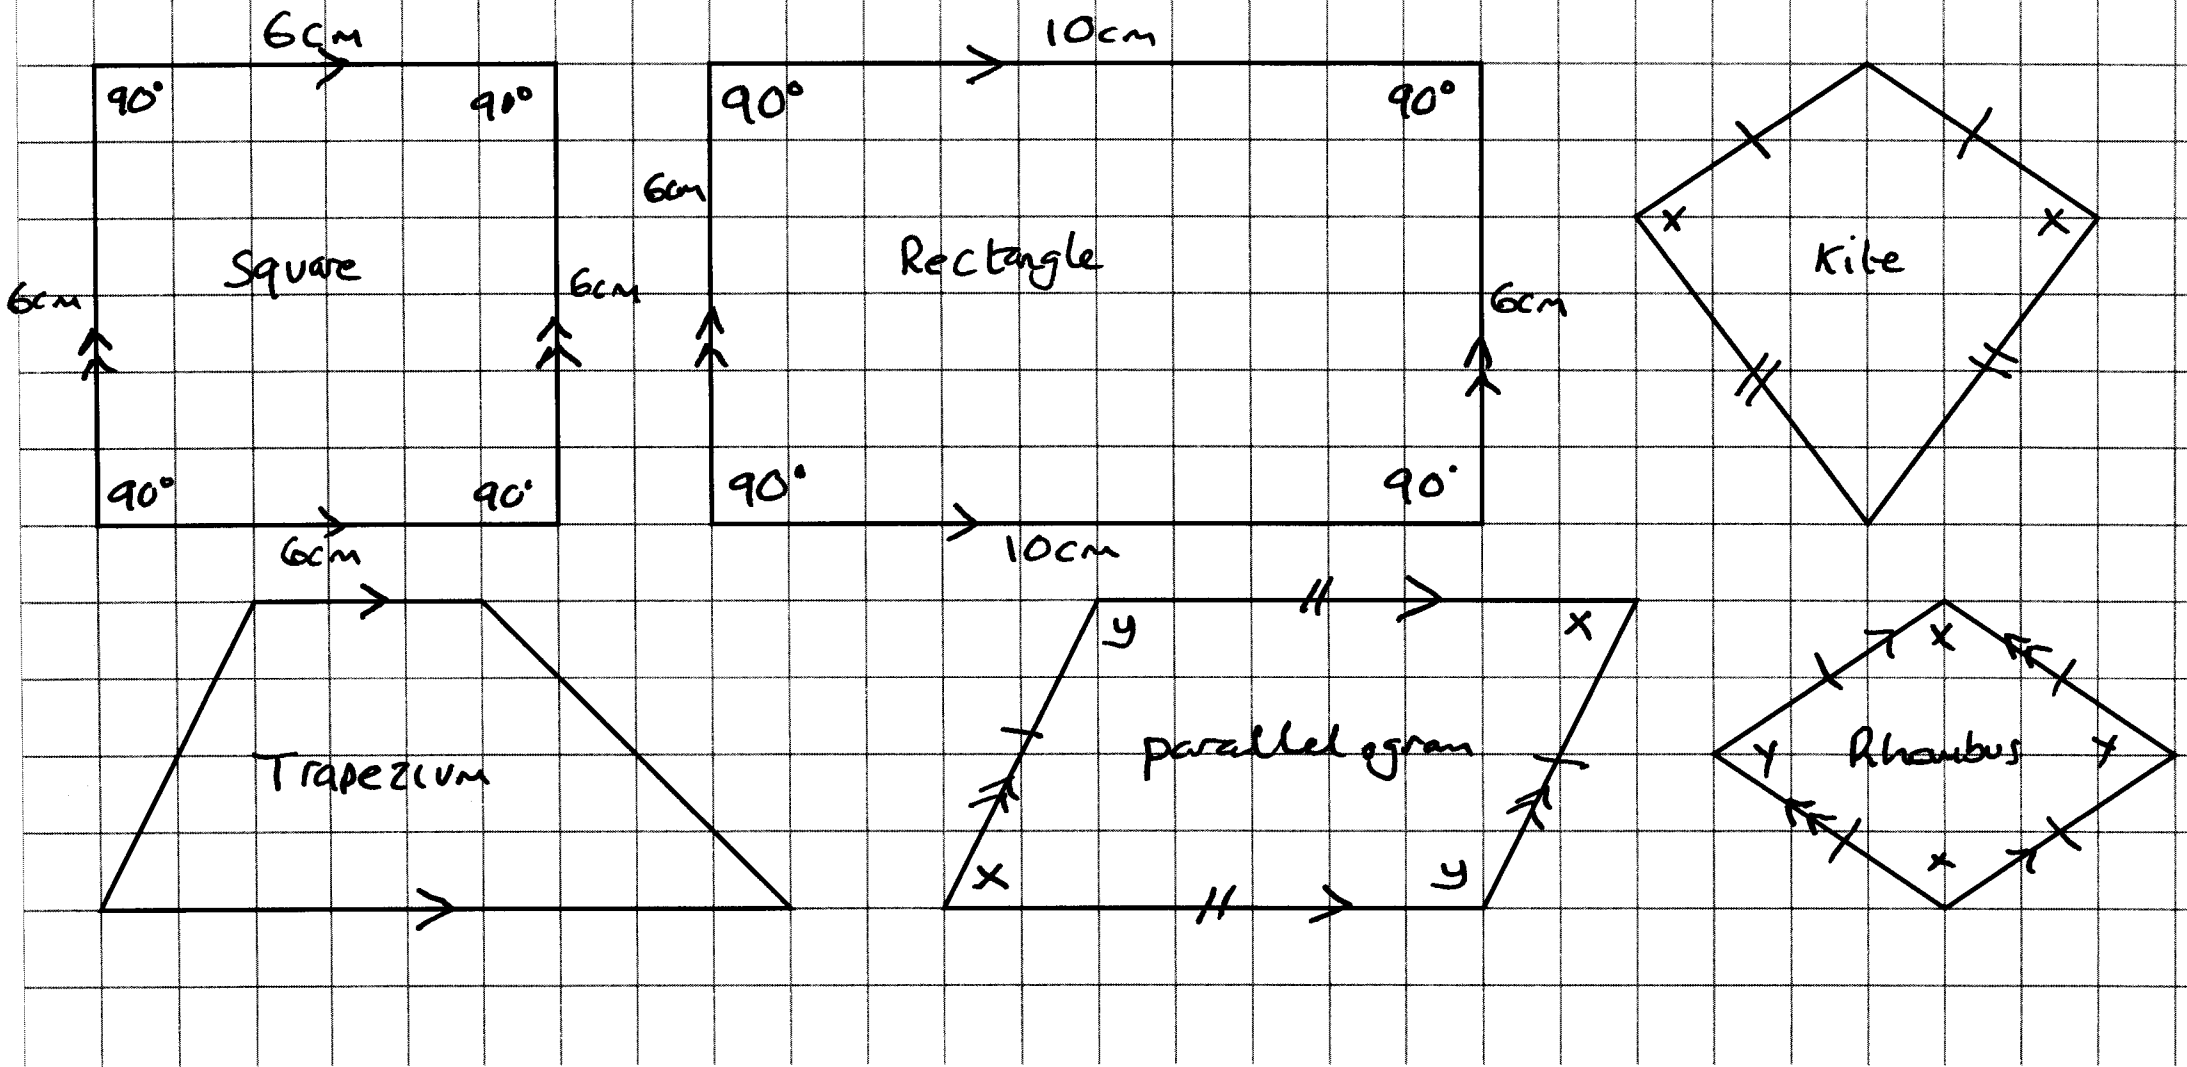 6cm
90° 90°
Square
6cm
6cm
90° 90°
6cm
10cm
90° 90°
6cm
Rectangle
6cm
90° 90°
10cm
x x
Kite
Trapezium
y x
parallelogram
x y
x
y Rhombus y
x